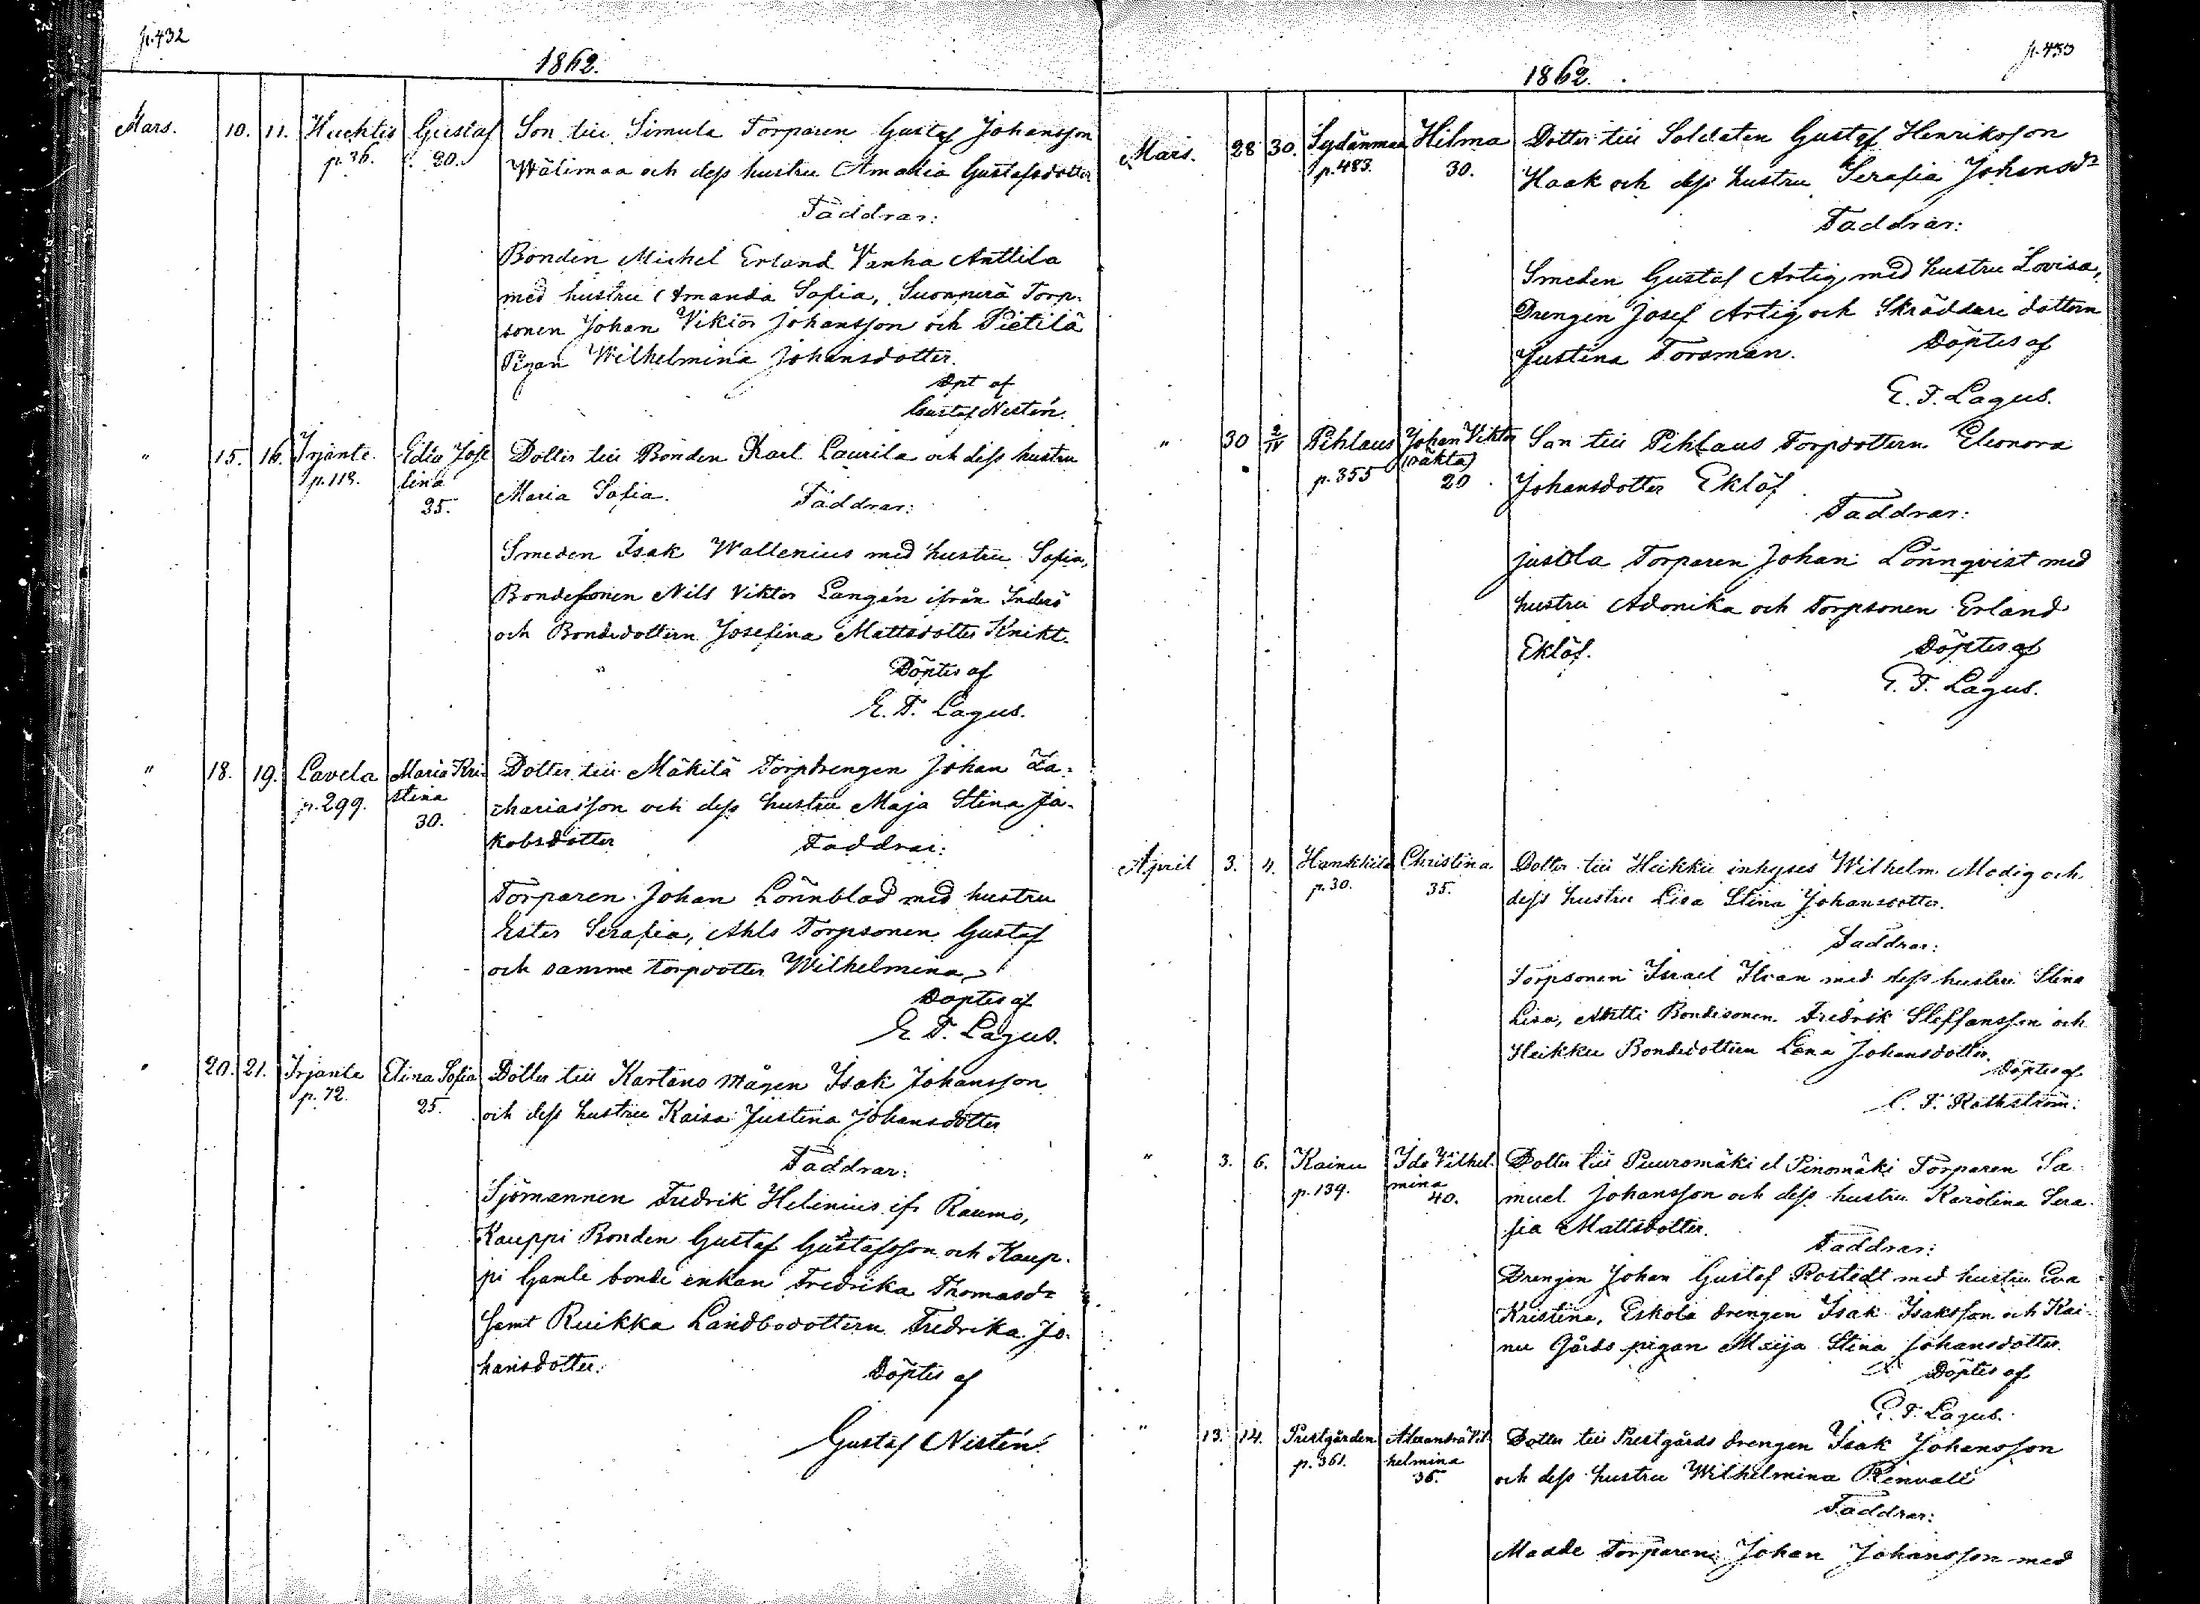 p.432
1862.
Mars. 10. 11. Huchtis Gustaf Son till Simula Torparen Gustaf Johansson
p.36. 20. Wälimaa och dess hustru Amalia Gustafsdotter
Faddrar:
Bonden Michel Erland Vanha Anttila
med hustru Amanda Sofia, Suonperä Torp-
sonen Johan Viktor Johansson och Pietilä
Pigan Wilhelmina Johansdotter.
Dpt af
Gustaf Nistén.
" 15. 16. Irjante Edla Jose Dotter till Bonden Karl Laurila och dess hustru
p.118. lina Maria Sofia. Faddrar:
35.
Smeden Isak Wallenius med hustru Sofia,
Bondesonen Nils Viktor Langén ifrån Inderö
och Bondedottern Josefina Mattsdotter Knikt.
Döptes af
E. F. Lagus.
" 18. 19. Lavela Maria Kri Dotter till Mäkilä Torpdrengen Johan Za-
p.299. stina chariasson och dess hustru Maja Stina Ja-
30. kobsdotter Faddrar:
Torparen Johan Lönnblad med hustru
Ester Serafia, Ahls Torpsonen Gustaf
och samme torpdotter Wilhelmina
Döptes af
E. F. Lagus.
" 20. 21. Irjante Elina Sofia Dotter till Kartano Mågen Isak Johansson
p.72. 25. och dess hustru Kaisa Justina Johansdotter
Faddrar:
Sjömannen Fredrik Helenius ifr Raumo,
Kauppi Bonden Gustaf Gustafsson och Kaup-
pi Gamle bonde enkan Fredrika Thomasdr
samt Ruikka Landbodottern Fredrika Jo-
hansdotter.
Döptes af
Gustaf Nistén.
p.433
1862.
Mars. 28 30. Sydänmaa Hilma Dotter till Soldaten Gustaf Henriksson
p.483. 30. Haak och dess hustru Serafia Johansdr
Faddrar:
Smeden Gustaf Artig med hustru Lovisa,
Drengen Josef Artig och Skräddare dottern
Justina Forsman. Döptes af
E. F. Lagus.
" 30 2/IV Pihlaus Johan Viktor Son till Pihlaus Torpdottern Eleonora
p.355 (oäkta) 20 Johansdotter Eklöf
Faddrar:
Justila Torparen Johan Lönnqvist med
hustru Adonika och Torpsonen Erland
Eklöf. Döptes af
E. F. Lagus.
April 3. 4. Hankkila Christina Dotter till Heikku inhyses Wilhelm Modig och
p.30. 35. dess hustru Lisa Stina Johansdotter.
Faddrar:
Torpsonen Israel Ilvan med dess hustru Stina
Lisa, Antti Bondesonen Fredrik Steffansson och
Heikku Bondedottern Lena Johansdotter.
Döptes af
C. F. Rothström.
" 3. 6. Kainu Ida Vilhel- Dotter till Puuromäki el Pinomäki Torparen Sa-
p.139. mina muel Johansson och dess hustru Karolina Sera-
40. fia Mattsdotter.
Faddrar:
Drengen Johan Gustaf Rostedt med hustru Eva
Kristina, Eskola drengen Isak Isaksson och Kai-
nu Gårds pigan Maija Stina Johansdotter.
Döptes af
E. F. Lagus.
" 13. 14. Prestgården Alexandra Vil- Dotter till Prestgårds drengen Isak Johansson
p.361. helmina och dess hustru Wilhelmina Renvall
36. Faddrar:
Madde Torparen Johan Johansson med